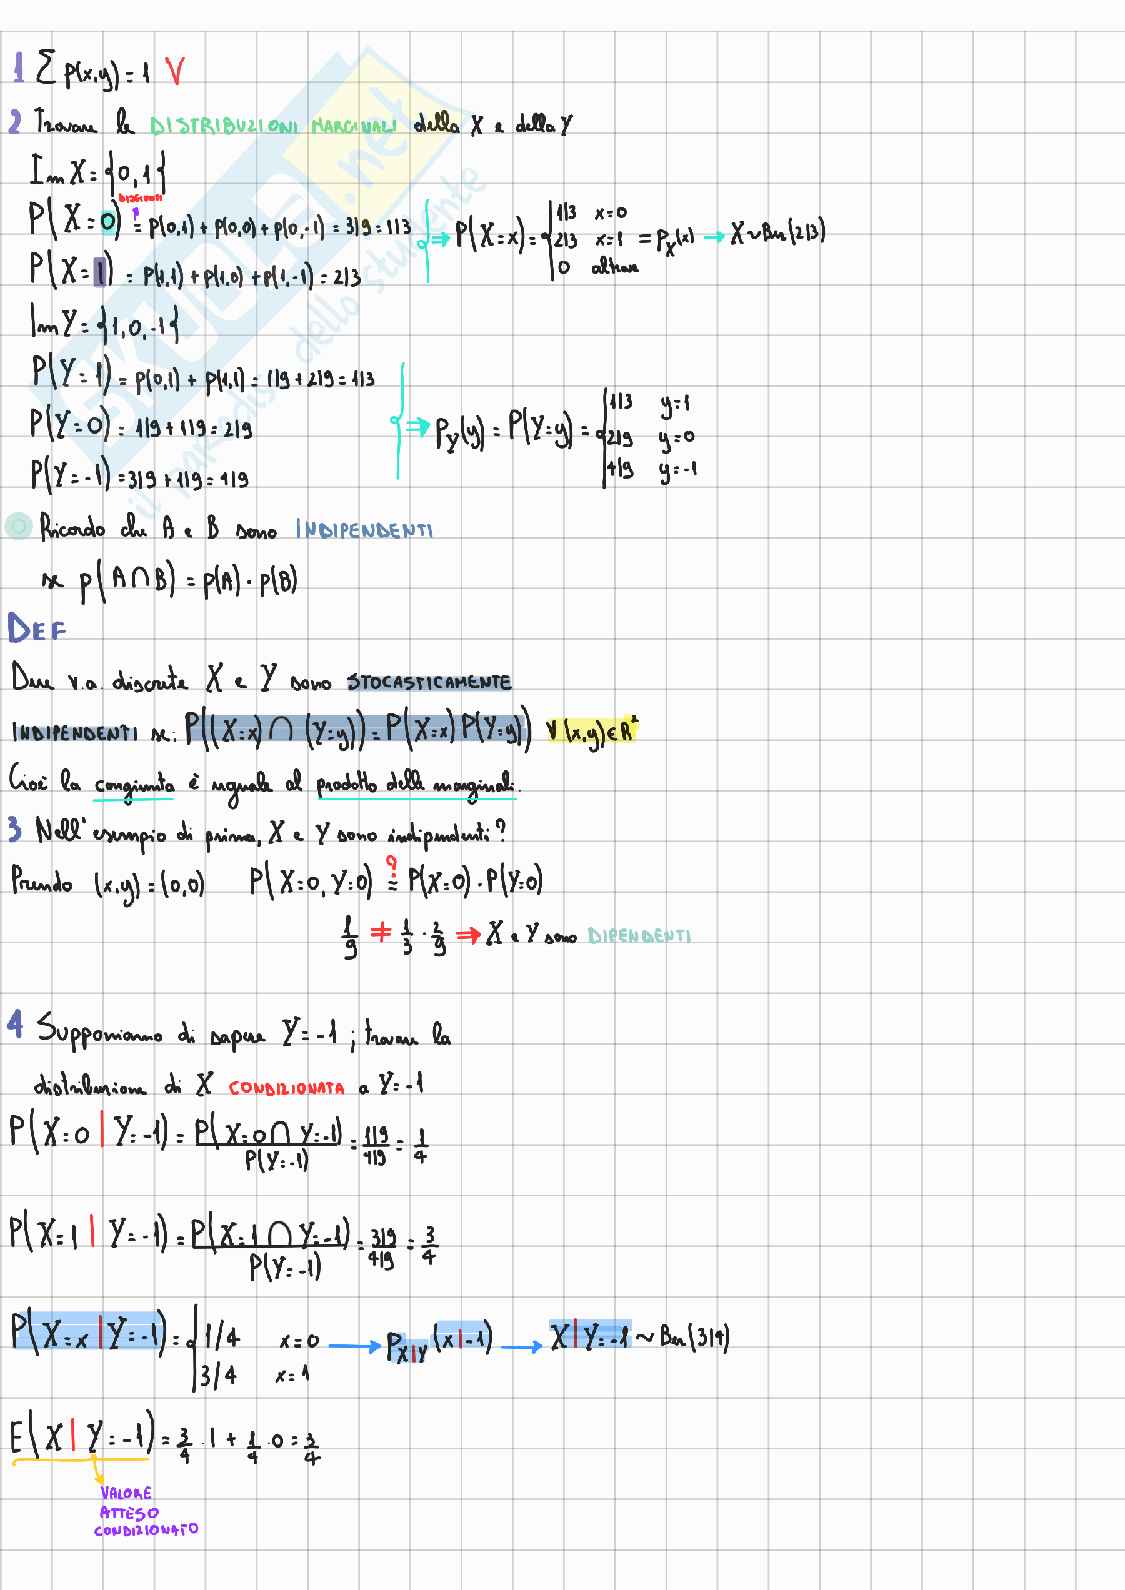 1 Σ p(x,y) = 1 V
2 Trovare le DISTRIBUZIONI MARGINALI della X e della Y
Im X = {0, 1}
DISGIUNTI
P(X=0) = p(0,1) + p(0,0) + p(0,-1) = 3/9 = 1/3 ⇒ P(X=x) = { 1/3 x=0
2/3 x=1 = p_X(x) → X ~ Ber(2/3)
0 altrove
P(X=1) = p(1,1) + p(1,0) + p(1,-1) = 2/3
Im Y = {1, 0, -1}
P(Y=1) = p(0,1) + p(1,1) = 1/9 + 2/9 = 1/3
P(Y=0) = 1/9 + 1/9 = 2/9 ⇒ p_Y(y) = P(Y=y) = { 1/3 y=1
2/9 y=0
4/9 y=-1
P(Y=-1) = 3/9 + 1/9 = 4/9
Ricordo che A e B sono INDIPENDENTI
se p(A∩B) = p(A) · p(B)
DEF
Due v.a. discrete X e Y sono STOCASTICAMENTE
INDIPENDENTI se: P((X=x) ∩ (Y=y)) = P(X=x) P(Y=y) ∀(x,y) ∈ R²
Cioè la congiunta è uguale al prodotto delle marginali.
3 Nell'esempio di prima, X e Y sono indipendenti?
Prendo (x,y) = (0,0) P(X=0, Y=0) =? P(X=0) · P(Y=0)
1/9 ≠ 1/3 · 2/9 ⇒ X e Y sono DIPENDENTI
4 Supponiamo di sapere Y = -1 ; trovare la
distribuzione di X CONDIZIONATA a Y = -1
P(X=0 | Y=-1) = P(X=0 ∩ Y=-1) / P(Y=-1) = 1/9 / 4/9 = 1/4
P(X=1 | Y=-1) = P(X=1 ∩ Y=-1) / P(Y=-1) = 3/9 / 4/9 = 3/4
P(X=x | Y=-1) = { 1/4 x=0 → p_X|Y (x|-1) → X|Y=-1 ~ Ber(3/4)
3/4 x=1
E(X | Y=-1) = 3/4 · 1 + 1/4 · 0 = 3/4
VALORE
ATTESO
CONDIZIONATO
SKUOLA.net
il paradiso dello studente